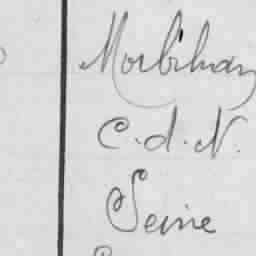 Morbihan
C. d. N.
Seine